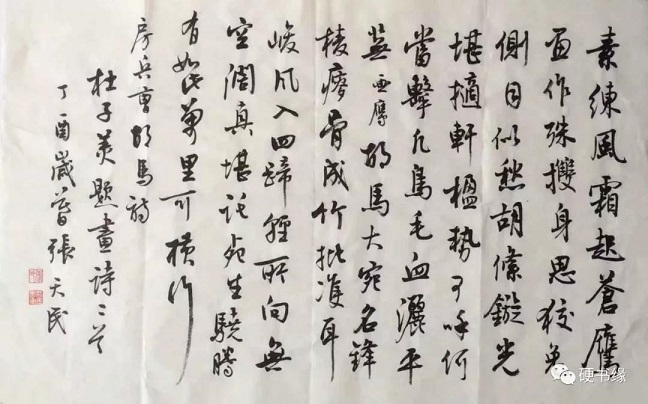 素練風霜起蒼鷹
画作殊㩳身思狡兔
側目似愁胡絛鏇光
堪擿軒楹勢可呼何
當擊凡鳥毛血灑平
蕪 画鷹 胡馬大宛名鋒
棱瘦骨成竹批雙耳
峻風入四蹄輕所向無
空闊真堪託死生驍騰
有如此萬里可橫行
房兵曹胡馬詩
杜子美題畫詩二首
丁酉歲暮張天民
硬书缘